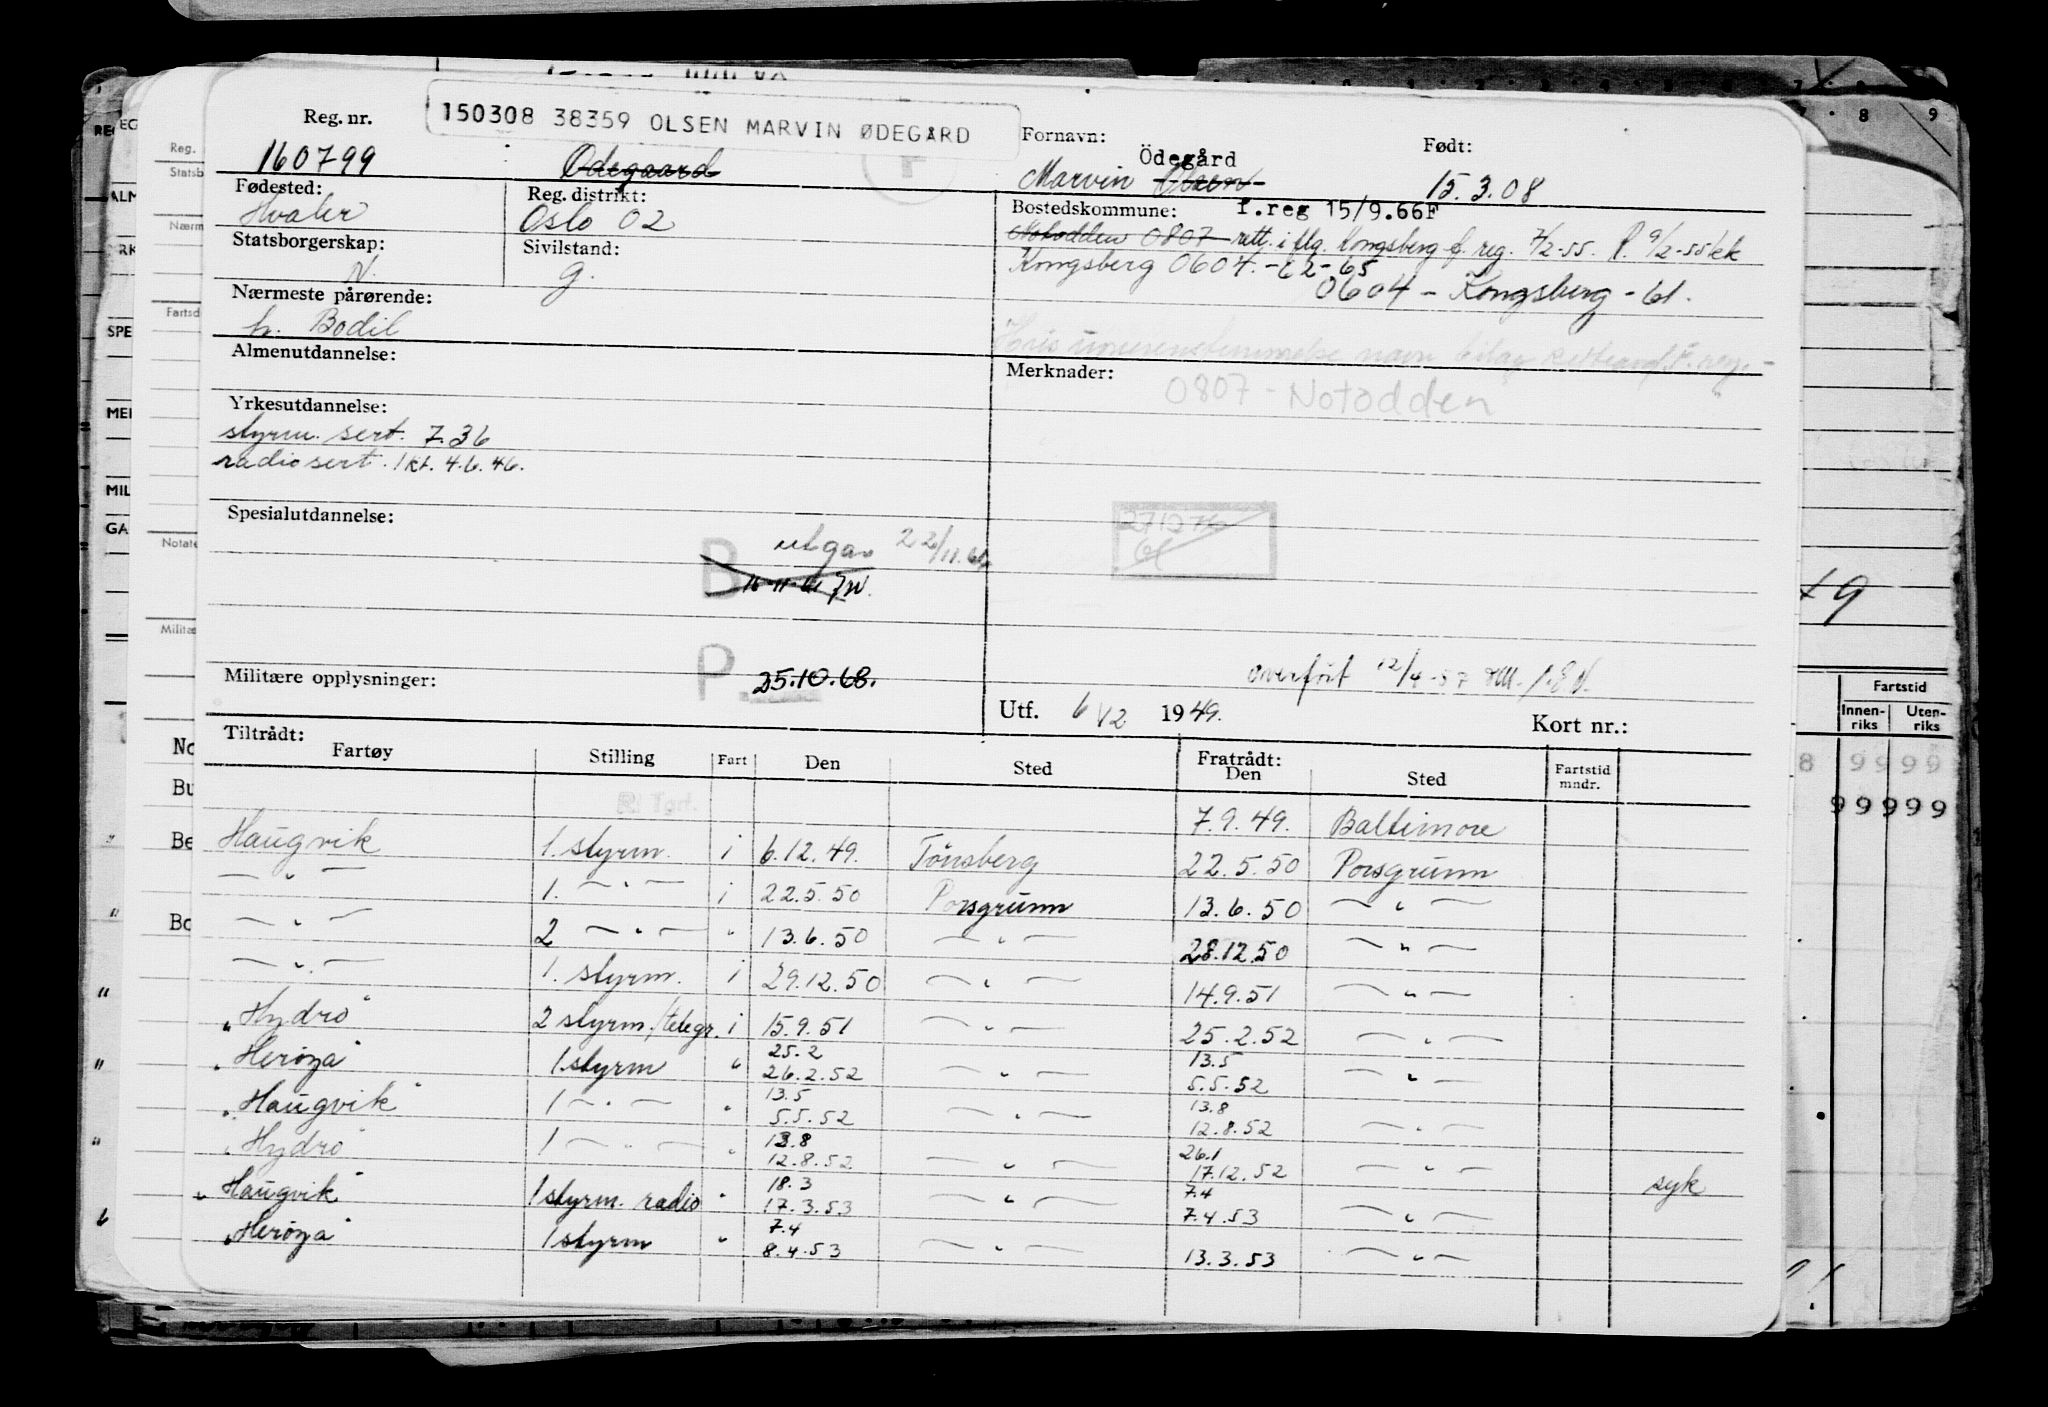 Reg. nr.
150308 38359 OLSEN MARVIN ØDEGÅRD
Fornavn:
Født:
160799
Odegaard
Marvin Olsen
Ödegård
15.3.08
Fødested:
Hvaler
Reg. distrikt:
Oslo 02
Bostedskommune:
f.reg 15/9.66F
Notodden 0807 rett. i flg. Kongsberg f. reg. 7/2-55. P. 9/2-55
Statsborgerskap:
N.
Sivilstand:
g.
Kongsberg 0604.-62-65
0604 - Kongsberg - 61.
Nærmeste pårørende:
h. Bodil
Almenutdannelse:
Merknader:
0807 - Notodden
Yrkesutdannelse:
styrm. sert. 7.36
radiosert. 1 kl. 4.6.46.
Spesialutdannelse:
271076
61
B utgar 22/11.61
16-11-61
P 25.10.68.
Militære opplysninger:
overført 12/4-57
Utf. 6/12 1949.
Kort nr.:
Tiltrådt:
Fartøy Stilling Fart Den Sted Fratrådt: Den Sted Fartstid mndr.
7.9.49. Baltimore
Haugvik 1. styrm. i 6.12.49. Tönsberg 22.5.50 Porsgrunn
— " — 1. — " — i 22.5.50 Porsgrunn 13.6.50 — " —
— " — 2 — " — " 13.6.50 — " — 28.12.50 — " —
— " — 1. styrm. i 29.12.50 — " — 14.9.51 — " —
"Hydro" 2 styrm./telegr. i 15.9.51 — " — 25.2.52 — " —
25.2 13.5
"Herøya" 1 styrm " 26.2.52 — " — 5.5.52 — " —
13.5 13.8
"Haugvik" 1 — " — " 5.5.52 — " — 12.8.52 — " —
13.8 26.1
"Hydro" 1 — " — " 12.8.52 — " — 17.12.52 — " — syk
18.3 7.4
"Haugvik" 1 styrm. radio " 17.3.53 — " — 7.4.53 — " —
7.4
"Herøya" 1 styrm " 8.4.53 — " — 13.3.53 — " —
Fartstid
Innen-riks
Uten-riks
8 9999
99999